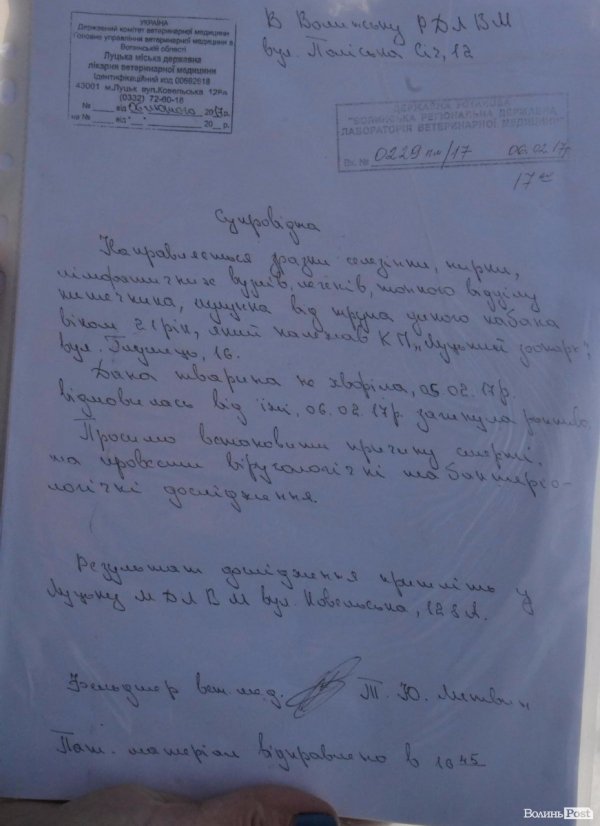 УКРАЇНА
Державний комітет ветеринарної медицини
Головне управління ветеринарної медицини в
Волинській області
Луцька міська державна
лікарня ветеринарної медицини
Ідентифікаційний код 00692618
43001 м.Луцьк вул.Ковельська 12Ра
(0332) 72-60-16
№ від 06 лютого 2017р.
на № від " " 20 р.
В Волинську РДЛВМ
вул. Поліська Січ, 12
ДЕРЖАВНА УСТАНОВА
"ВОЛИНСЬКА РЕГІОНАЛЬНА ДЕРЖАВНА
ЛАБОРАТОРІЯ ВЕТЕРИНАРНОЇ МЕДИЦИНИ"
Вх. № 0229 пм/17 06.02.17р
17
Супровідна
Направляється зразки селезінки, нирки,
лімфатичних вузлів, легенів, тонкого відділу
кишечника, шлунка від трупа дикого кабана
віком 21 рік, який належав КП „Луцький зоопарк"
вул. 16.
Дана тварина не хворіла, 05.02.17р.
відмовилась від їжі, 06.02.17р. загинула раптово.
Просимо встановити причину смерті.
та провести вірусологічні та бактеріо-
логічні дослідження.
Результат дослідження пришліть у
Луцьку МДЛВМ вул. Ковельська, 128А.
Фельдшер вет. мед. Т. Ю. Литвин
Пат. матеріал відправлено в 16 45
ВолиньPost